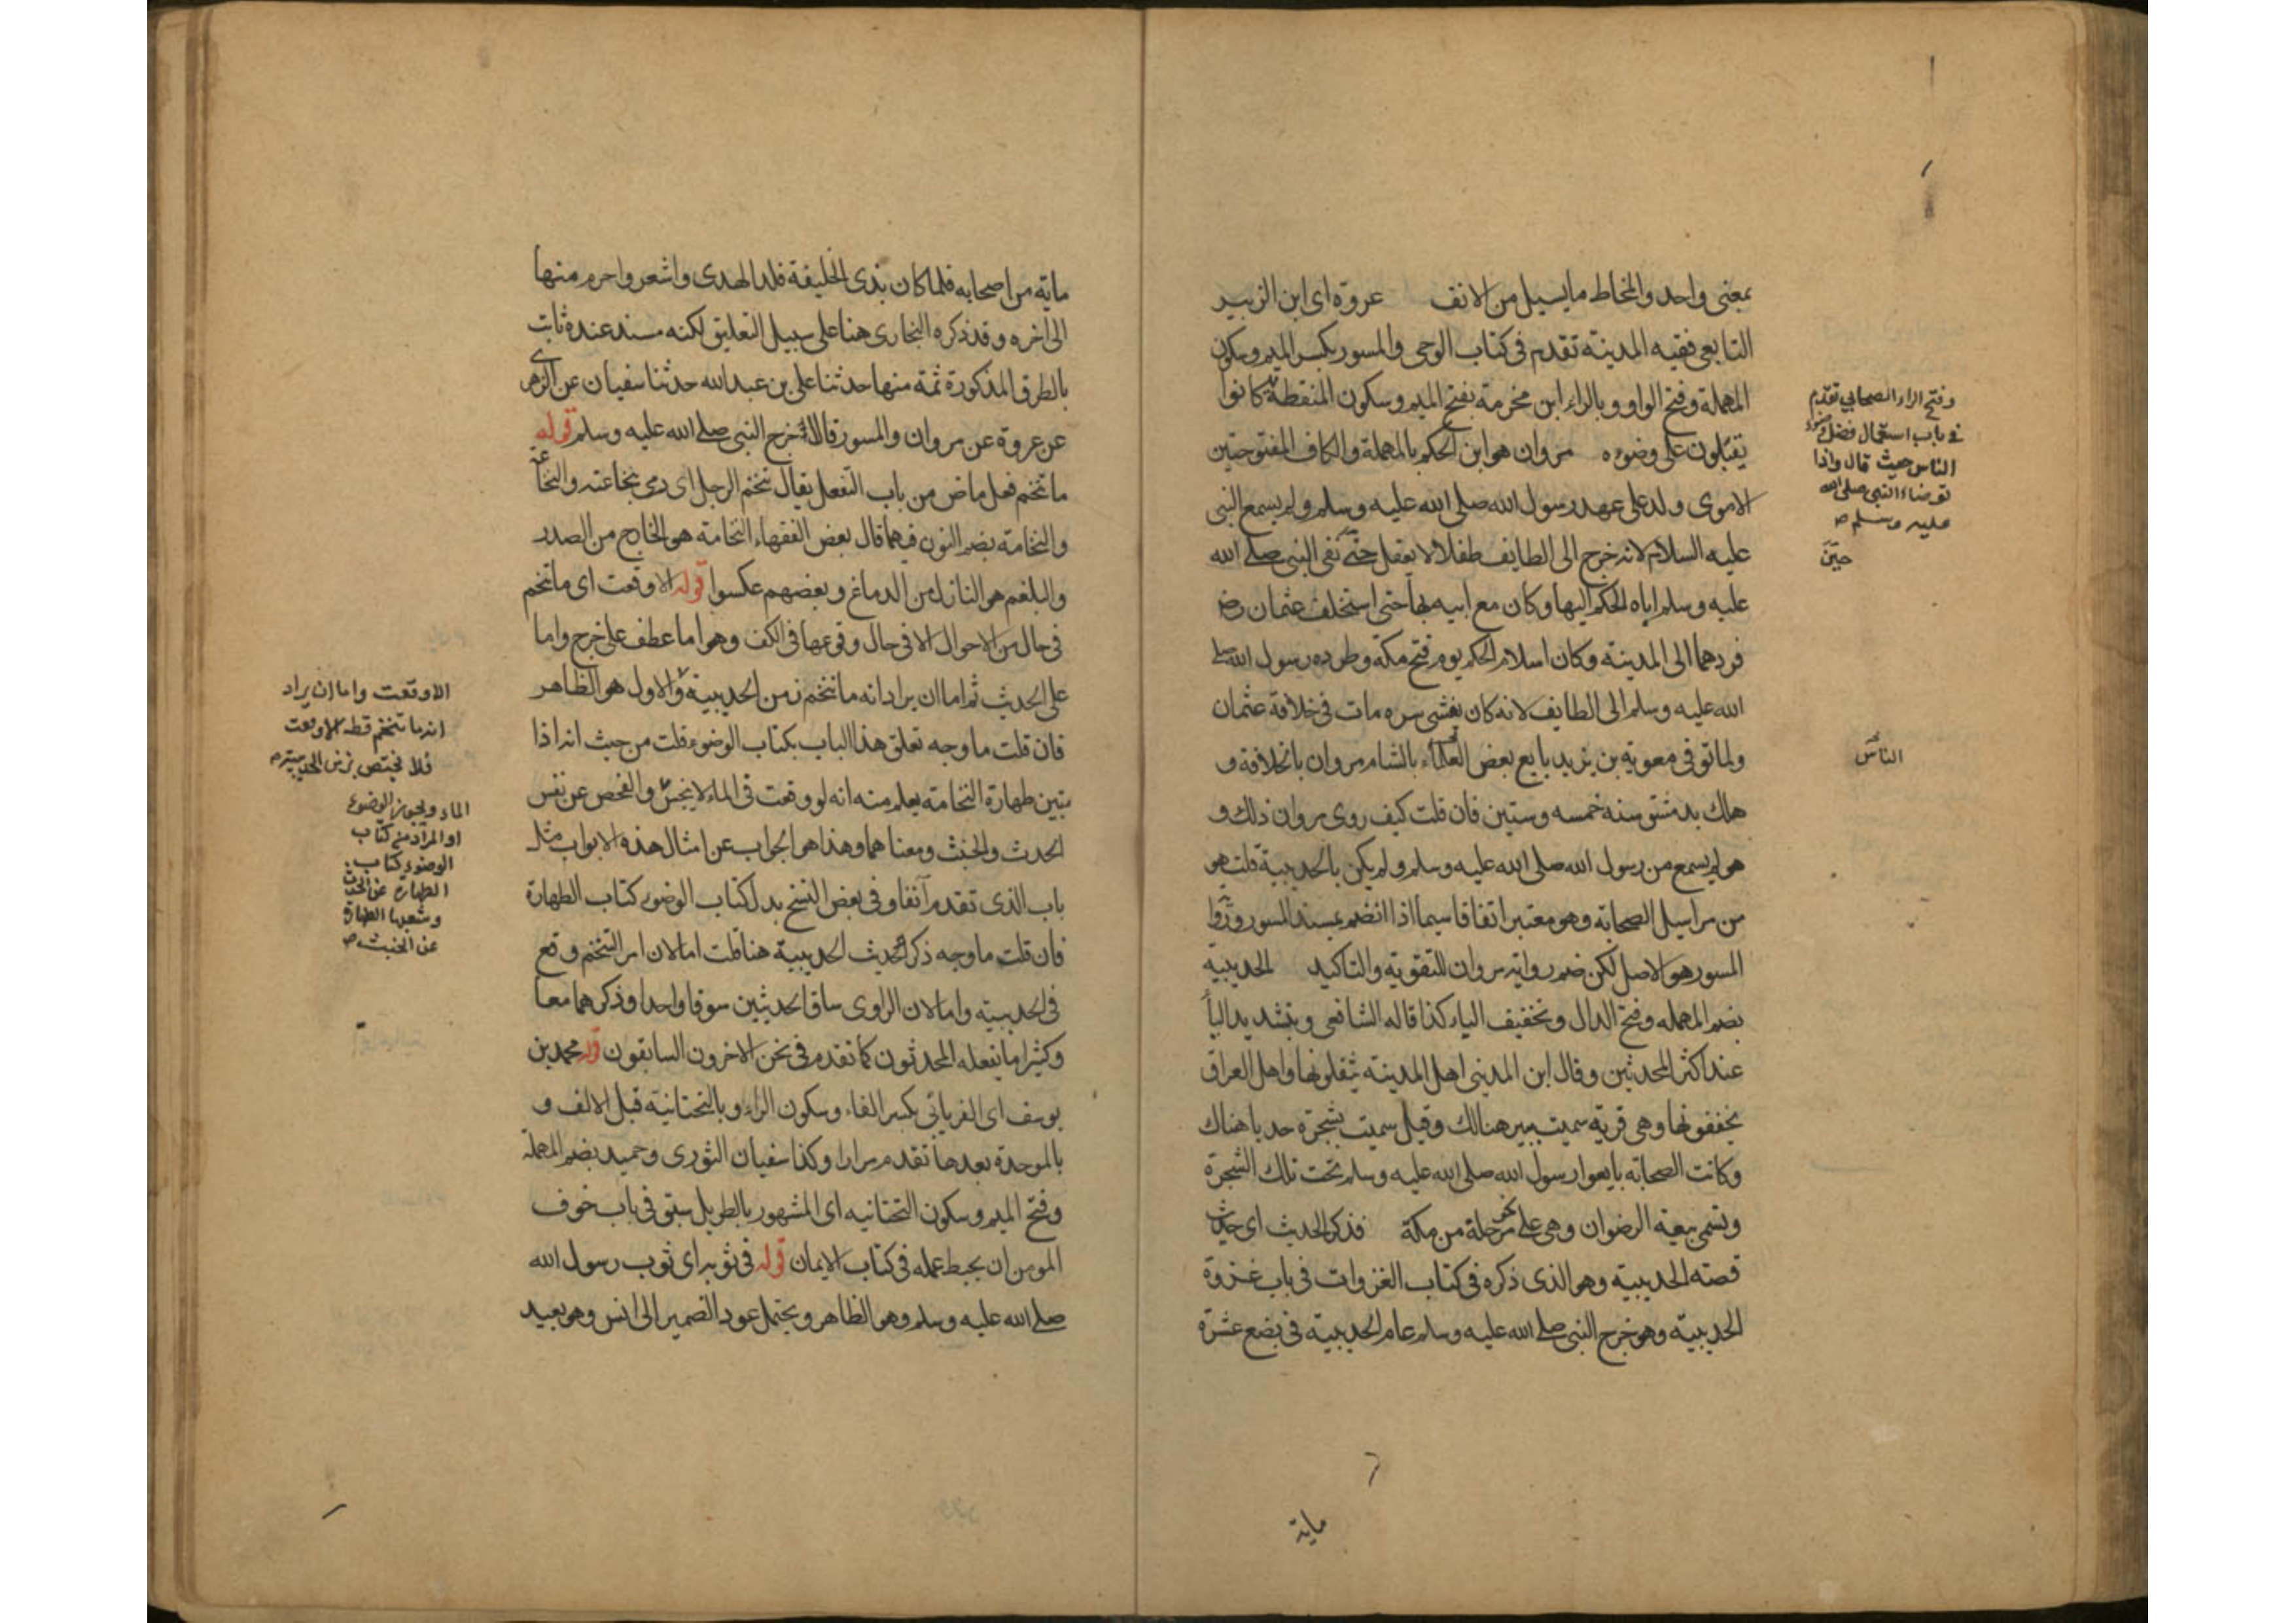 بمعنى واحد والمخاط ما يسيل من الانف عروة اى ابن الزبير
التابعى فقيه المدينة تقدم فى كتاب الوحى والمسور بكسر الميم وسكون
المهملة وفتح الواو وبالراء ابن مخرمة بفتح الميم وسكون المنقطة كانوا
يقتتلون على وضوءه مروان هو ابن الحكم بالمهملة والكاف المفتوحتين
الاموى ولد على عهد رسول الله صلى الله عليه وسلم ولم يسمع النبى
عليه السلام لانه خرج الى الطايف طفلا لا يعقل حتى نفى النبى صلى الله
عليه وسلم اياه الحكم اليها وكان مع ابيه بها حتى استخلف عثمان رض
فردهما الى المدينة وكان اسلام الحكم يوم فتح مكة وطرده رسول الله صلى
الله عليه وسلم الى الطايف لانه كان يفشى سره مات فى خلافة عثمان
ولما توفى معوية بن يزيد بايع بعض بالشام مروان بالخلافة و
هلك بدمشق سنه خمسه وستين فان قلت كيف روى مروان ذلك و
هو لم يسمع من رسول الله صلى الله عليه وسلم ولم يكن بالحديبية قلت هو
من مراسيل الصحابه وهو معتبر اتفاقا سيما اذا انضم بمسند المسور
المسور هو الاصل لكن ضم رواية مروان للتقوية والتاكيد الحديبية
بضم المهمله وفتح الدال وتخفيف الياء كذا قاله الشافعى وبتشديد الياء
عند اكثر المحدثين وقال ابن المدينى اهل المدينة يثقلونها واهل العراق
يخففونها وهى قرية سميت ببير هنالك وقيل سميت بشجرة حدبا هناك
وكانت الصحابه بايعوا رسول الله صلى الله عليه وسلم تحت تلك الشجرة
وتسمى بيعة الرضوان وهى على نحو مرحلة من مكة فذكر الحديث اى حديث
قصة الحديبية وهو الذى ذكره فى كتاب الغزوات فى باب غزوة
الحديبية وهو خرج النبى صلى الله عليه وسلم عام الحديبية فى بضع عشرة
وفتح الراء الصحابي تقدم
في باب استعمال فضل وضوء
الناس حيث قال واذا
توضاء النبى صلى الله
عليه وسلم
الناس
ماية
ماية من اصحابه فلما كان بذى الحليفة قلد الهدى واشعر واحرم منها
الى اخره وقد ذكره البخارى هنا على سبيل التعليق لكنه مسند عنده ثابت
بالطرق المذكورة ثمة منها حدثنا على بن عبد الله حدثنا سفيان عن الزهرى
عن عروة عن مروان والمسور قالا خرج النبى صلى الله عليه وسلم قوله
ما تنخم فعل ماض من باب التفعل يقال تنخم الرجل اى رمى بنخاعته والنخاعة
والنخامة بضم النون فيهما قال بعض الفقهاء النخامة هو الخارج من الصدر
والبلغم هو النازل من الدماغ وبعضهم عكسوا قوله الا وقعت اى ما تنخم
فى حال من الاحوال الا فى حال وقوعها فى الكف وهو اما عطف على خرج واما
على الحديث ثم اما ان يراد انه ما تنخم زمن الحديبية والاول هو الظاهر
فان قلت ما وجه تعلق هذا الباب بكتاب الوضوء قلت من حيث انه اذا
يتبين طهارة النخامة يعلم منه انه لو وقعت فى الماء لا ينجس والفحص عن نفس
الحدث والخبث ومعناهما وهذا هو الجواب عن امثال هذه الابواب مثل
باب الذى تقدم آنفا وفى بعض النسخ بدل كتاب الوضوء كتاب الطهارة
فان قلت ما وجه ذكر حديث الحديبية هنا قلت اما لان امر التنخم وقع
فى الحديبية واما لان الراوى ساق الحديثين سوقا واحدا وذكرهما معا
وكثيرا ما يفعله المحدثون كما تقدم فى نحن الاخرون السابقون قوله محمد بن
يوسف اى الفريابى بكسر الفاء وسكون الراء وبالتحتانية قبل الالف و
بالموحدة بعدها تقدم مرارا وكذا سفيان الثورى وحميد بضم المهملة
وفتح الميم وسكون التحتانيه اى المشهور بالطويل سبق فى باب خوف
المومن ان يحبط عمله فى كتاب الايمان قوله فى ثوبه اى ثوب رسول الله
صلى الله عليه وسلم وهو الظاهر ويحتمل عود الضمير الى انس وهو بعيد
الا وقعت واما ان يراد
انه ما تنخم قط الا وقعت
فلا يختص بزمن الحديبية
الماء ويجوز الوضوء
او المراد من كتاب
الوضوء كتاب
الطهارة عن الحدث
الطهارة
عن الخبث